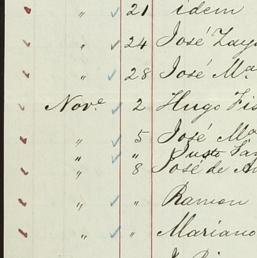 " 21 idem
" 24 José Zay
" 28 José Mª
Nove 2 Hugo Fis
" 5 José Mª
" " Justo
" 8 José de
" " Ramon
" " Mariano